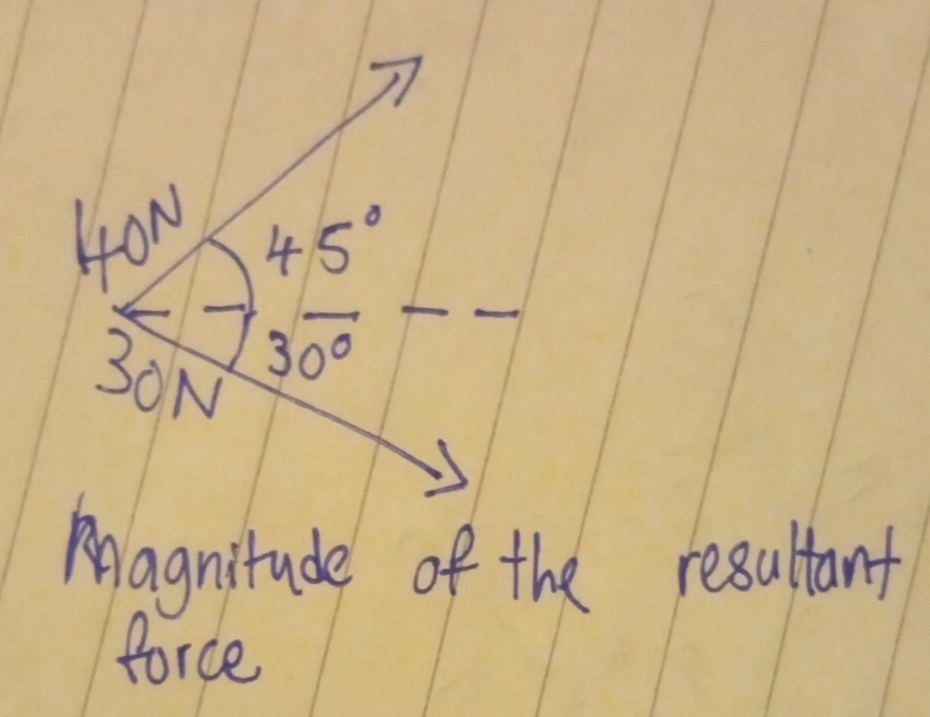 40N
45°
30°
30N
Magnitude of the resultant
force